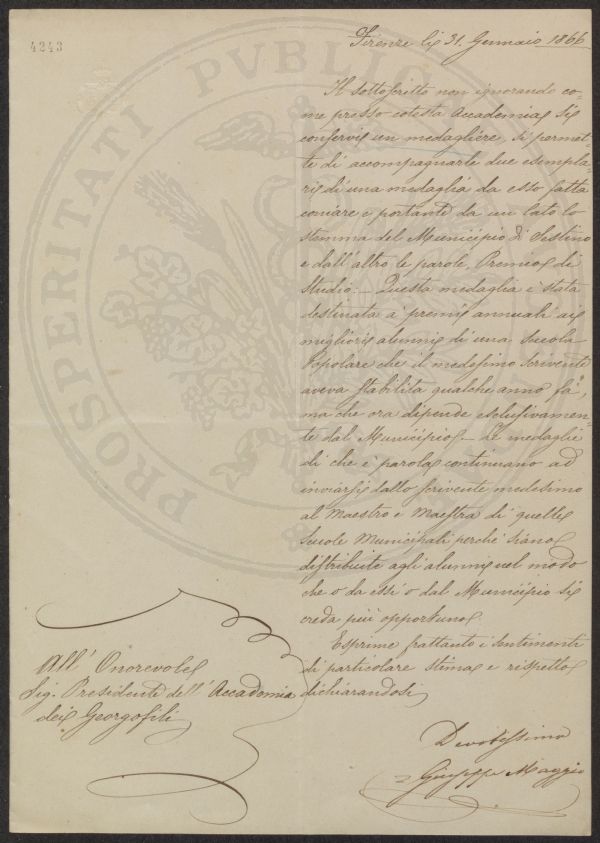 4243
Firenze li 31. Gennaio 1866
Il sottoscritto non ignorando co-
me presso cotesta Accademia si
conservi un medagliere, si permet-
te di accompagnarle due esempla-
ri di una medaglia da esso fatta
coniare e portante da un lato lo
stemma del Municipio di Sestino
e dall'altro le parole, Premio di
Studio. - Questa medaglia è stata
destinata a' premi annuali ai
migliori alunni di una Scuola
Popolare che il medesimo scrivente
aveva stabilita qualche anno fà,
ma che ora dipende esclusivamen-
te dal Municipio. - Le medaglie
di che è parola continerano ad
inviarsi dallo scrivente medesimo
al Maestro e Maestra di quelle
Scuole Municipali perchè siano
distribuite agli alunni nel modo
che o da essi o dal Municipio si
creda più opportuno.
Esprime frattanto i sentimenti
di particolare stima e rispetto
dichiarandosi
All' Onorevole
Sig. Presidente dell' Accademia
dei Georgofili
Devotissimo
Giuseppe Maggio
PROSPERITATI PVBLIC